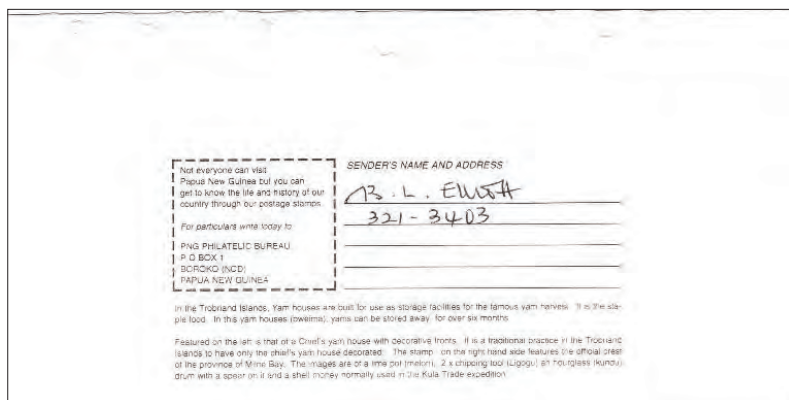 Not everyone can visit
Papua New Guinea but you can
get to know the life and history of our
country through our postage stamps.
For particulars write today to
PNG PHILATELIC BUREAU
P O BOX 1
BOROKO (NCD)
PAPUA NEW GUINEA
SENDER'S NAME AND ADDRESS
B. L. Elliott
321-3403
In the Trobriand Islands, Yam houses are built for use as storage facilities for the famous yam harvest. It is the sta-
ple food. In this yam houses (bweima), yams can be stored away for over six months
Featured on the left is that of a Chief's yam house with decorative fronts. It is a traditional practice in the Trobriand
Islands to have only the chief's yam house decorated. The stamp on the right hand side features the official crest
of the province of Milne Bay. The images are of a lime pot (melon), 2 x chipping tool (Ligogu) an hourglass (kundu)
drum with a spear on it and a shell money normally used in the Kula Trade expedition